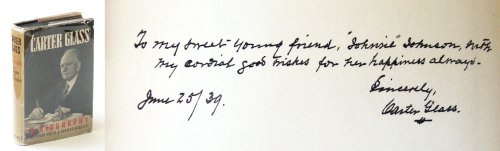 CARTER
GLASS
CARTER GLASS
A BIOGRAPHY
To my sweet young friend, "Johnsie" Johnson, with
my cordial good wishes for her happiness always.
Sincerely,
Carter Glass.
June 25/39.